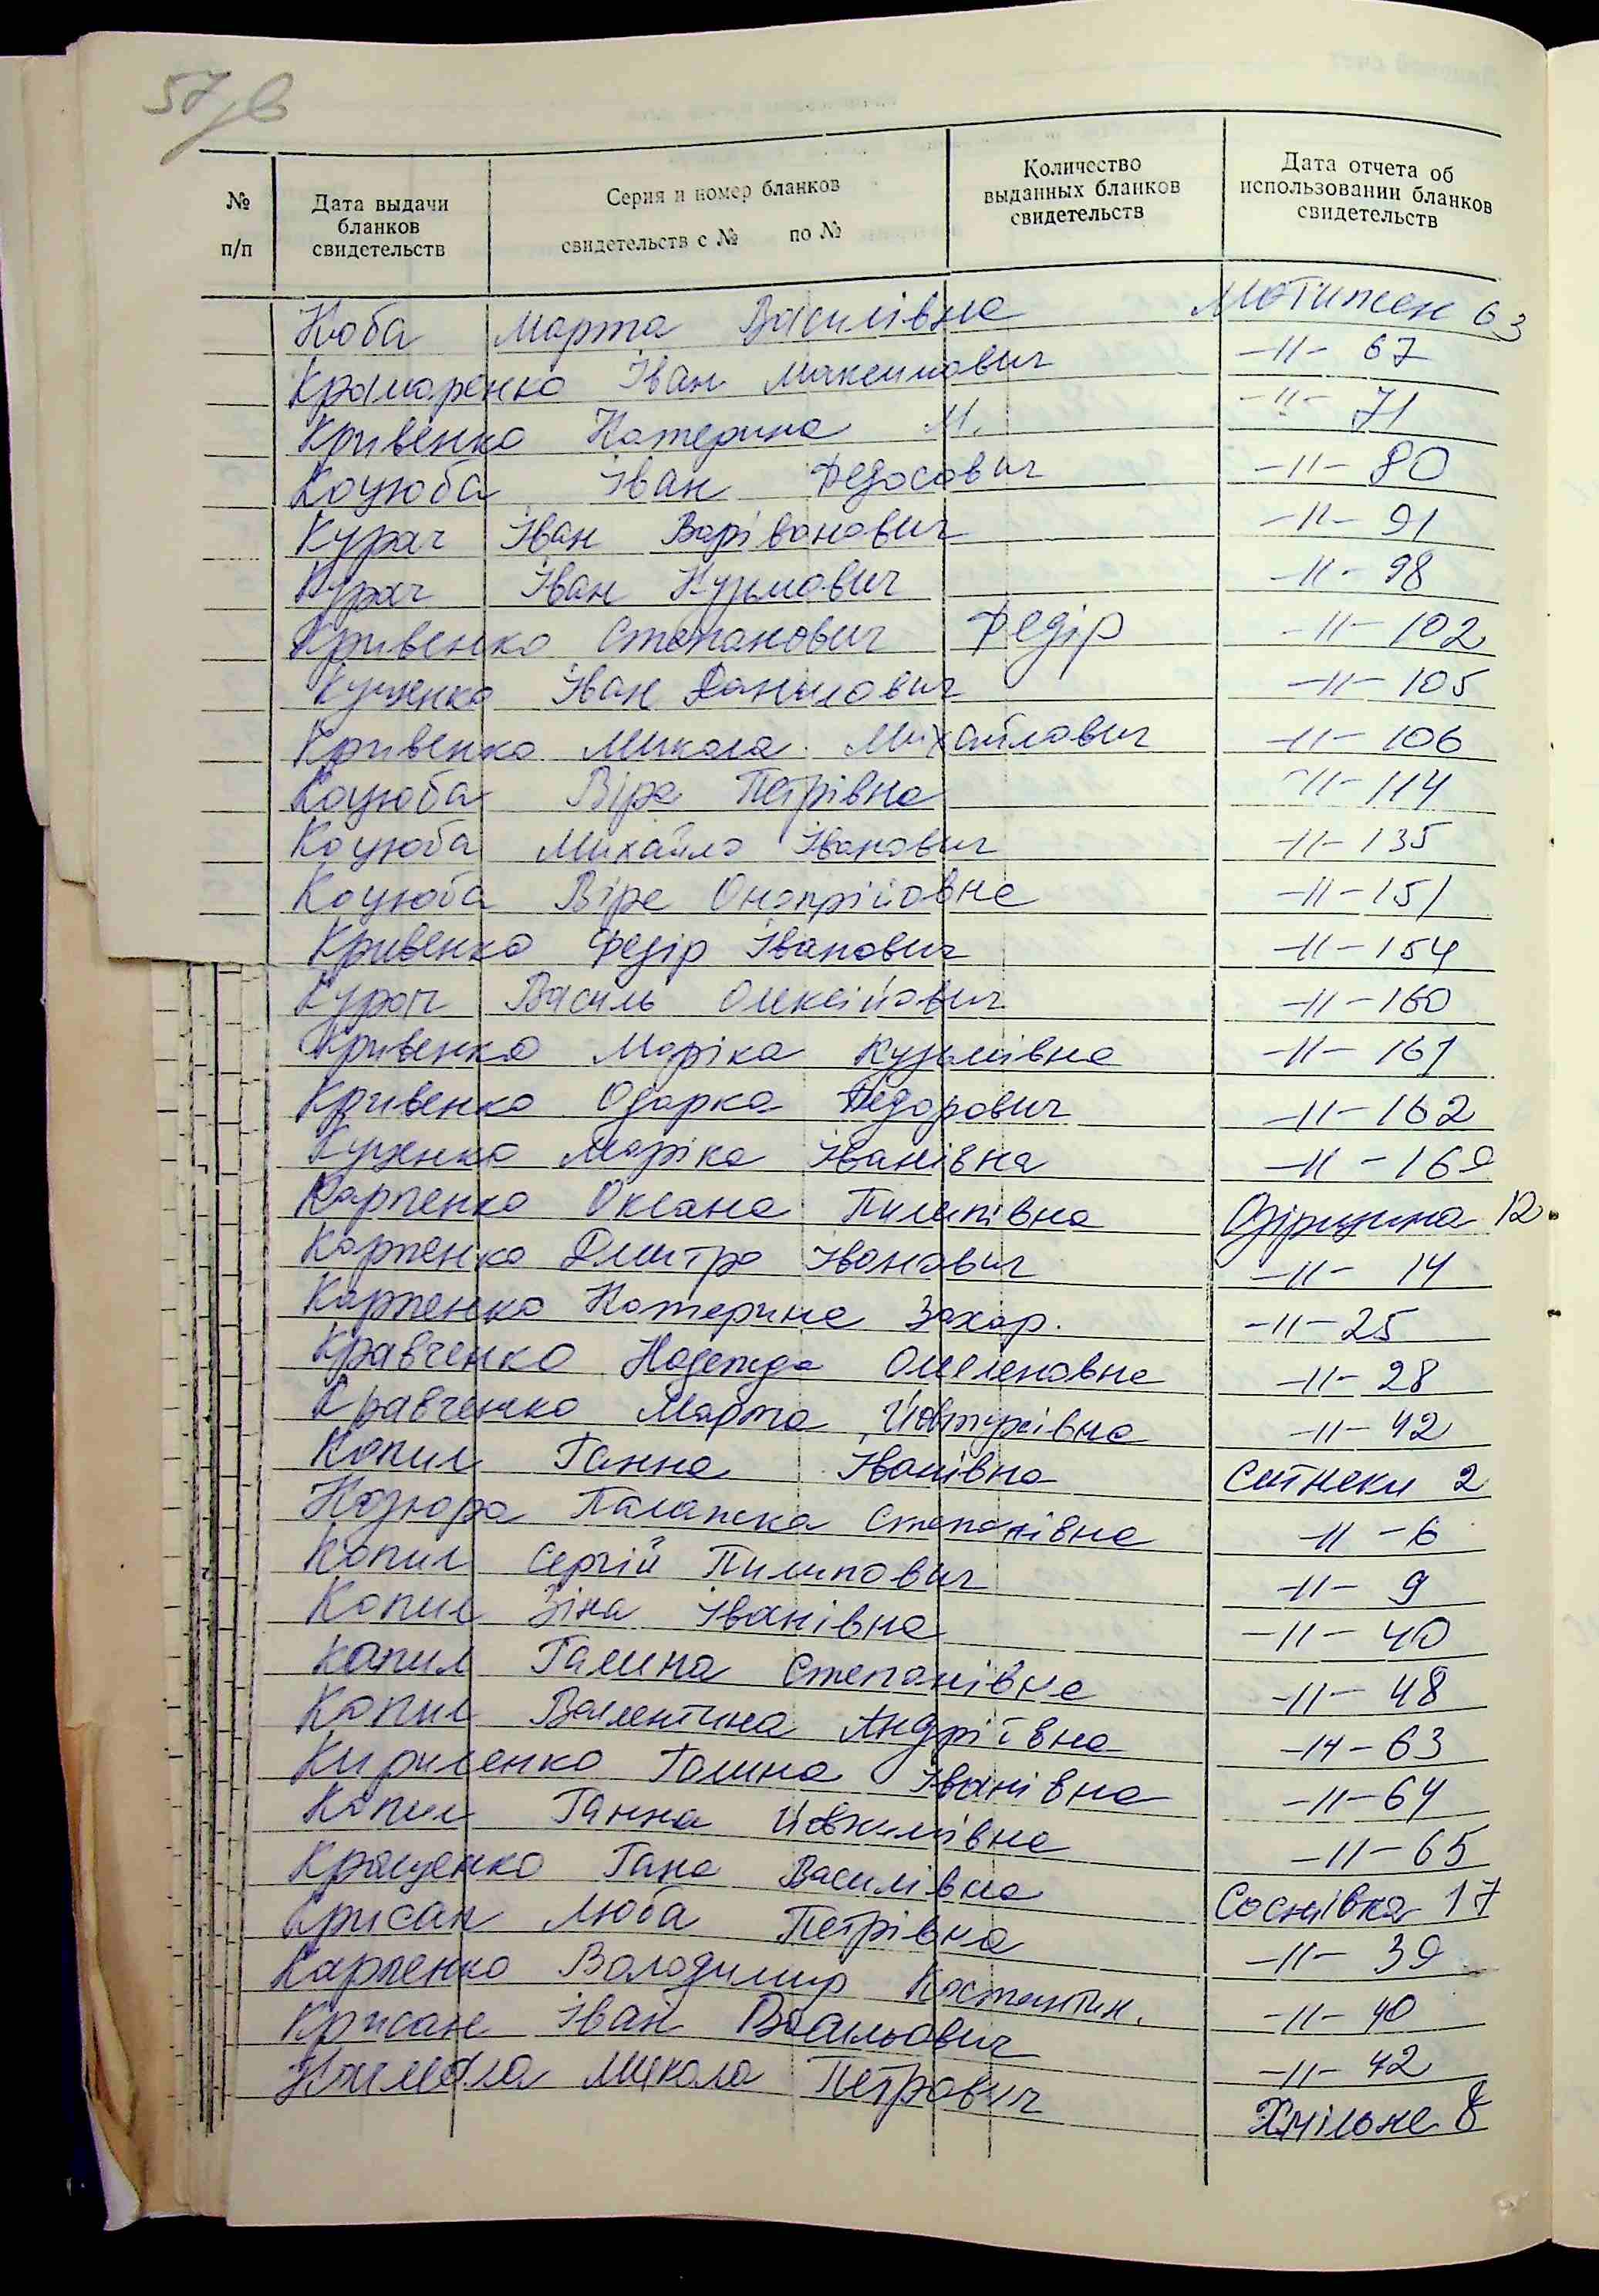 57зв
№ п/п
Дата выдачи бланков свидетельств
Серия и номер бланков свидетельств с № по №
Количество выданных бланков свидетельств
Дата отчета об использовании бланков свидетельств
Коба Марта Василівна Мотижен 63
Крамаренко Іван Максимович -11- 67
Кривенко Катерина М. -11- 71
Коцюба Іван Федосович -11- 80
Курач Іван Варівонович -11- 91
Курач Іван Кузьмович -11- 98
Кривенко Степанович Федір -11- 102
Куценко Іван Данилович -11- 105
Кривенко Микола Михайлович -11- 106
Коцюба Віра Петрівна -11- 114
Коцюба Михайло Іванович -11- 135
Коцюба Віра Онопрійовна -11- 151
Кривенко Федір Іванович -11- 154
Курач Василь Олексійович -11- 160
Кривенко Маріка Кузьмівна -11- 161
Кривенко Одарка Федорович -11- 162
Куценко Маріка Іванівна -11- 169
Карпенко Оксана Пилипівна Озірщина 12
Карпенко Дмитро Іванович -11- 14
Карпенко Катерина Захар. -11- 25
Кравченко Надежда Омеленовна -11- 28
Кравченко Марта Йовтухівна -11- 42
Копил Ганна Іванівна Ситнеки 2
Козюра Палажка Степанівна -11- 6
Копил Сергій Пилипович -11- 9
Копил Зіна Іванівна -11- 40
Копил Галина Степанівна -11- 48
Копил Валентина Андріївна -11- 63
Кириленко Галина Іванівна -11- 64
Копил Ганна Йовхимівна -11- 65
Кращенко Гана Василівна Соснівка 17
Крисан Люба Петрівна -11- 39
Карпенко Володимир Костянтин. -11- 40
Крисан Іван Васильович -11- 42
Микола Петрович Хмільне 8